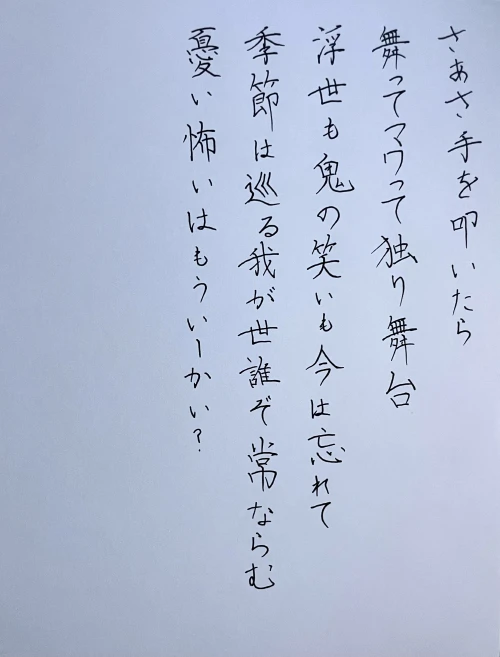 さあさ手を叩いたら
舞ってマワって独り舞台
浮世も鬼の笑いも今は忘れて
季節は巡る我が世誰ぞ常ならむ
憂い怖いはもういーかい?